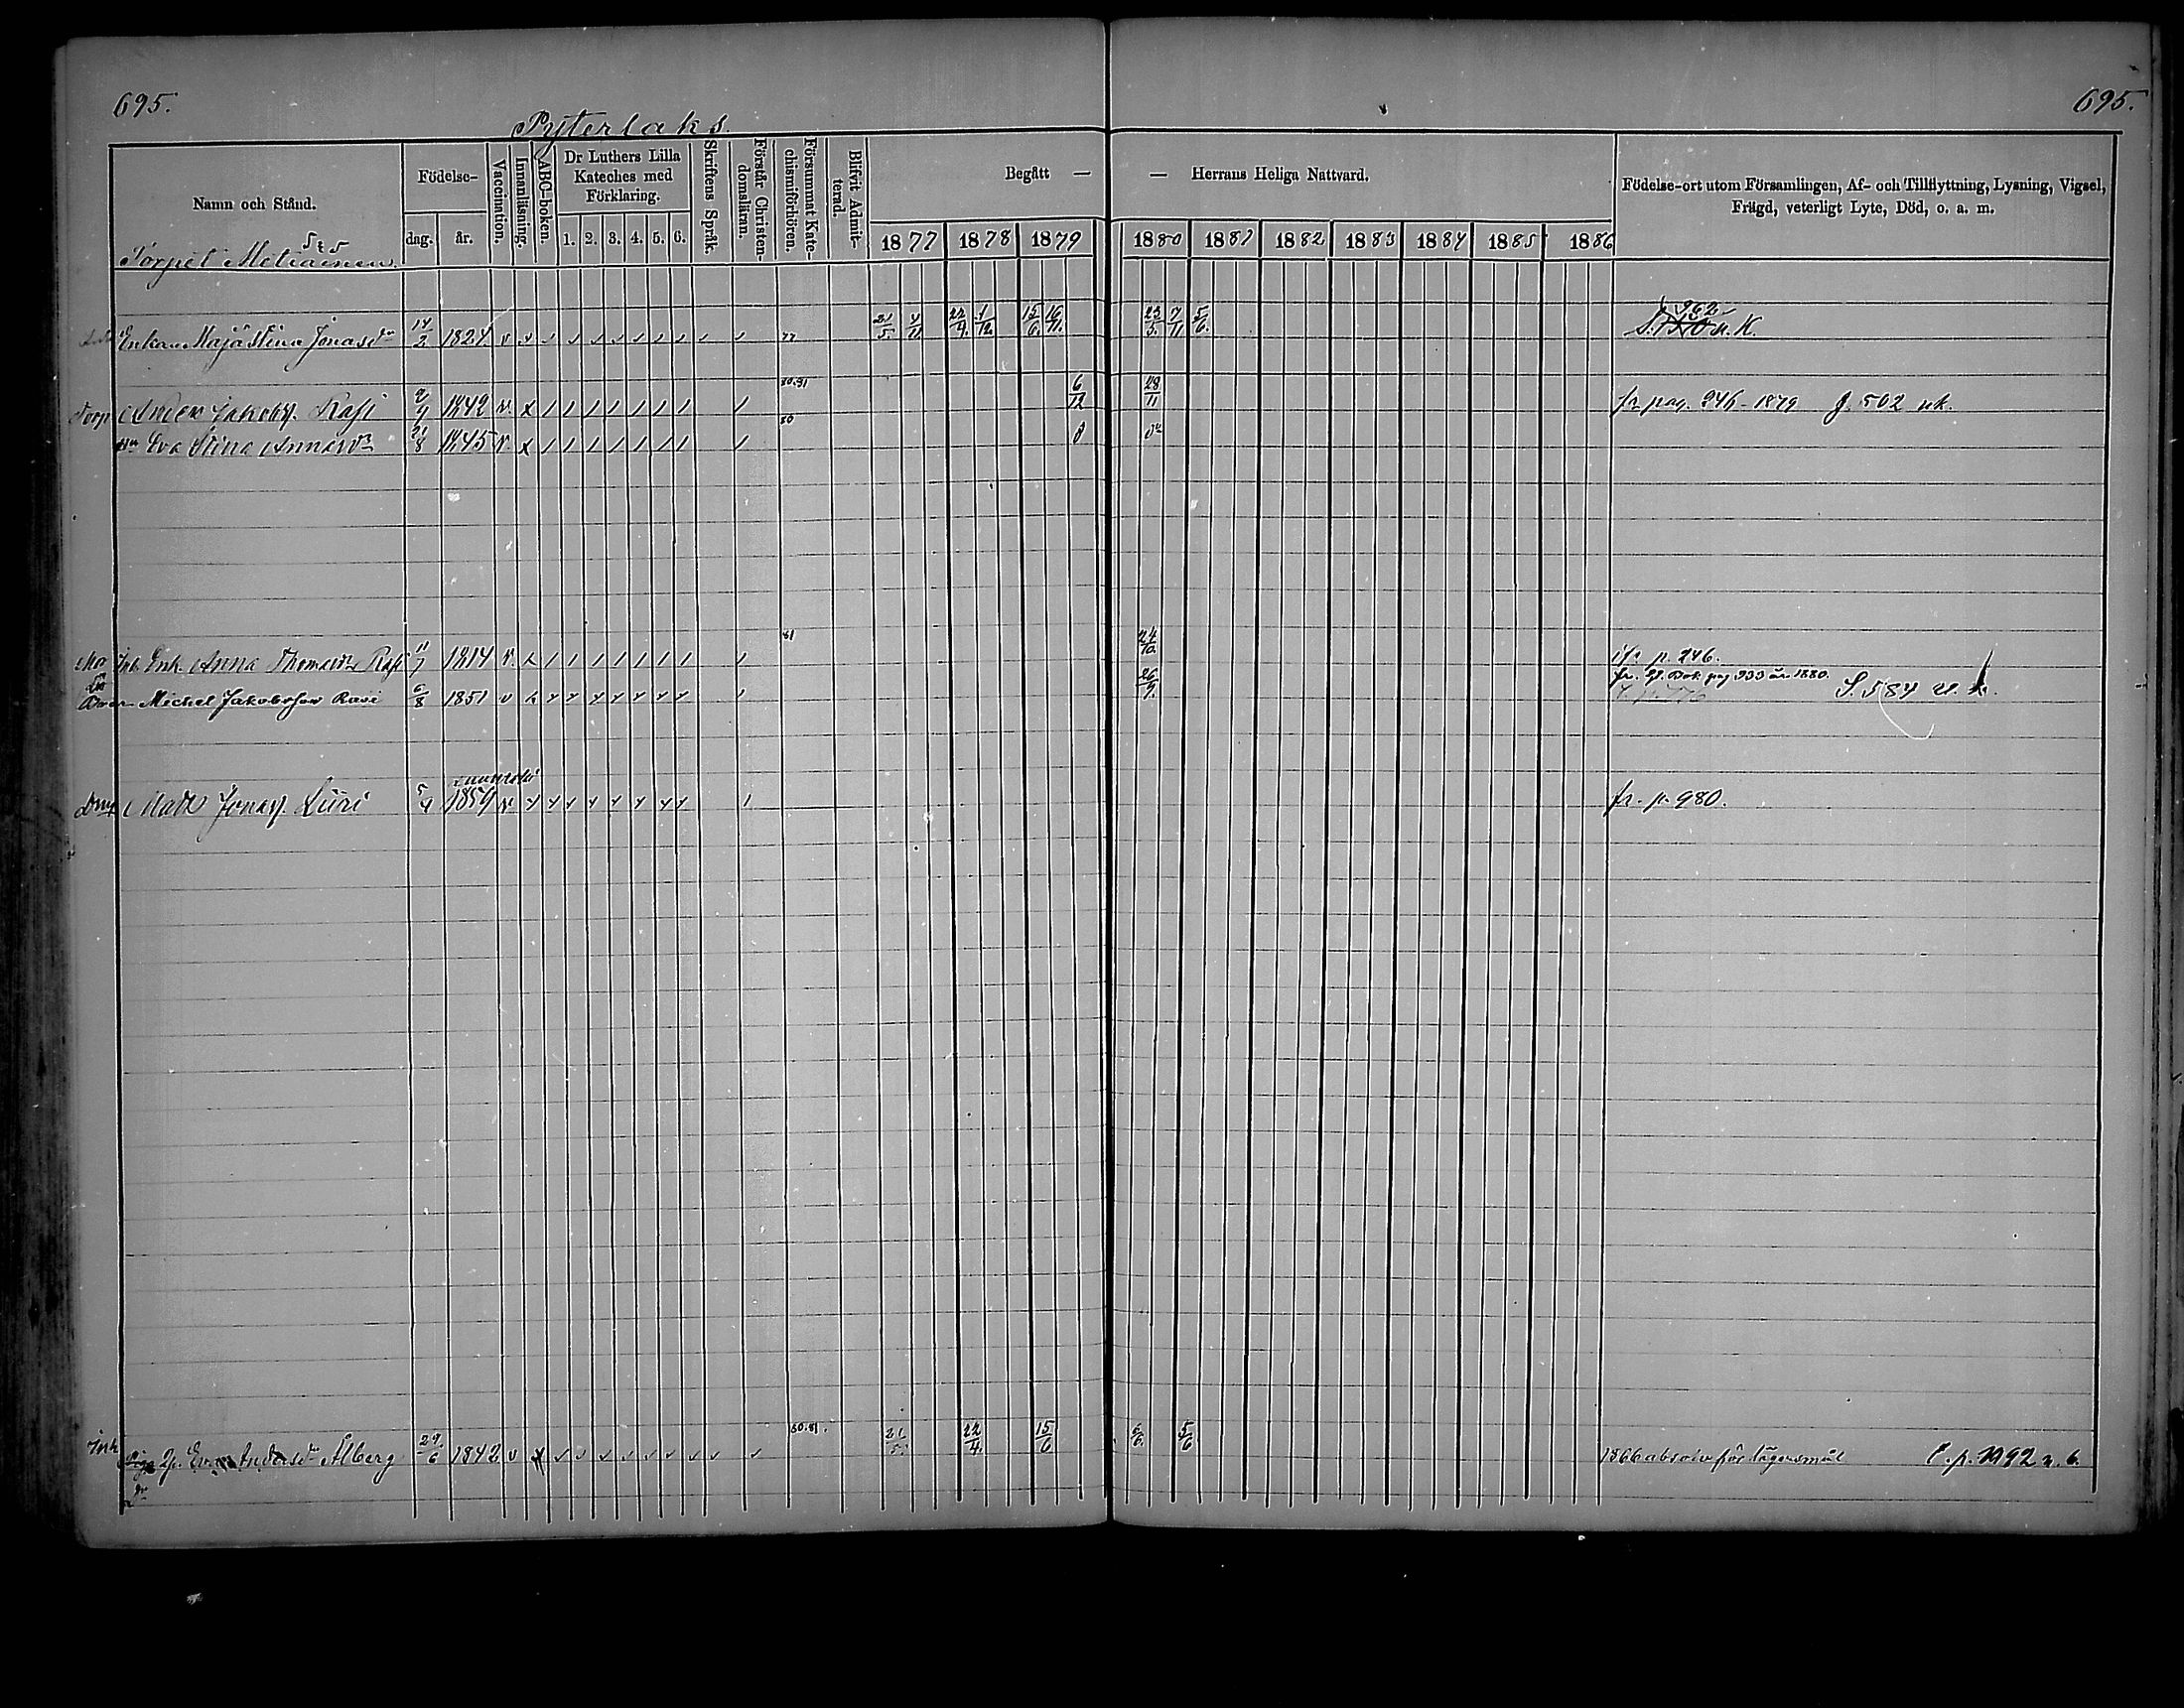 695.
695.
Pyterlaks.
Namn och Stånd.
Födelse-
dag.
år.
Vaccination.
Innanläsning.
ABC-boken.
Dr Luthers Lilla
Kateches med
Förklaring.
1. 2. 3. 4. 5. 6.
Skriftens Språk.
Förstår Christen-
domsläran.
Försummat Kate-
chismiförhören.
Blifvit Admit-
terad.
Begått — — Herrans Heliga Nattvard.
1877 1878 1879 1880 1881 1882 1883 1884 1885 1886
Födelse-ort utom Församlingen, Af- och Tillflyttning, Lysning, Vigsel,
Frägd, veterligt Lyte, Död, o. a. m.
5 2 5
Torpet
Enkan Maja Stina Jonasdr 14/2 1824 77 21/5. 4/11 22/4. 1/12 15/6. 16/11. 23/5. 7/11 5/6. 962 u. K.
Torp Anders Jakobss. Rasi 1842 80.81 6/12 28/11 fr pag. 246-1879 f. 502 uk.
Hu Eva Stina 21/8 1845 80
Mor Inh. Enk. Anna Thomasdr Rasi 11/7 1814 81 24/10. ifr. p. 246.
Michel Jakobsson Rasi 6/8 1851 26/9. fr. Bok pag 933 år 1880. S. 584 u. k.
Matts Jonass. Liiri 5/4 1859 fr. p. 980.
Inh Eva Andersdr Ålberg 29/6 1842 80.81. 21/5. 22/4. 15/6 6/6. 5/6 1866 absolv för lägersmål